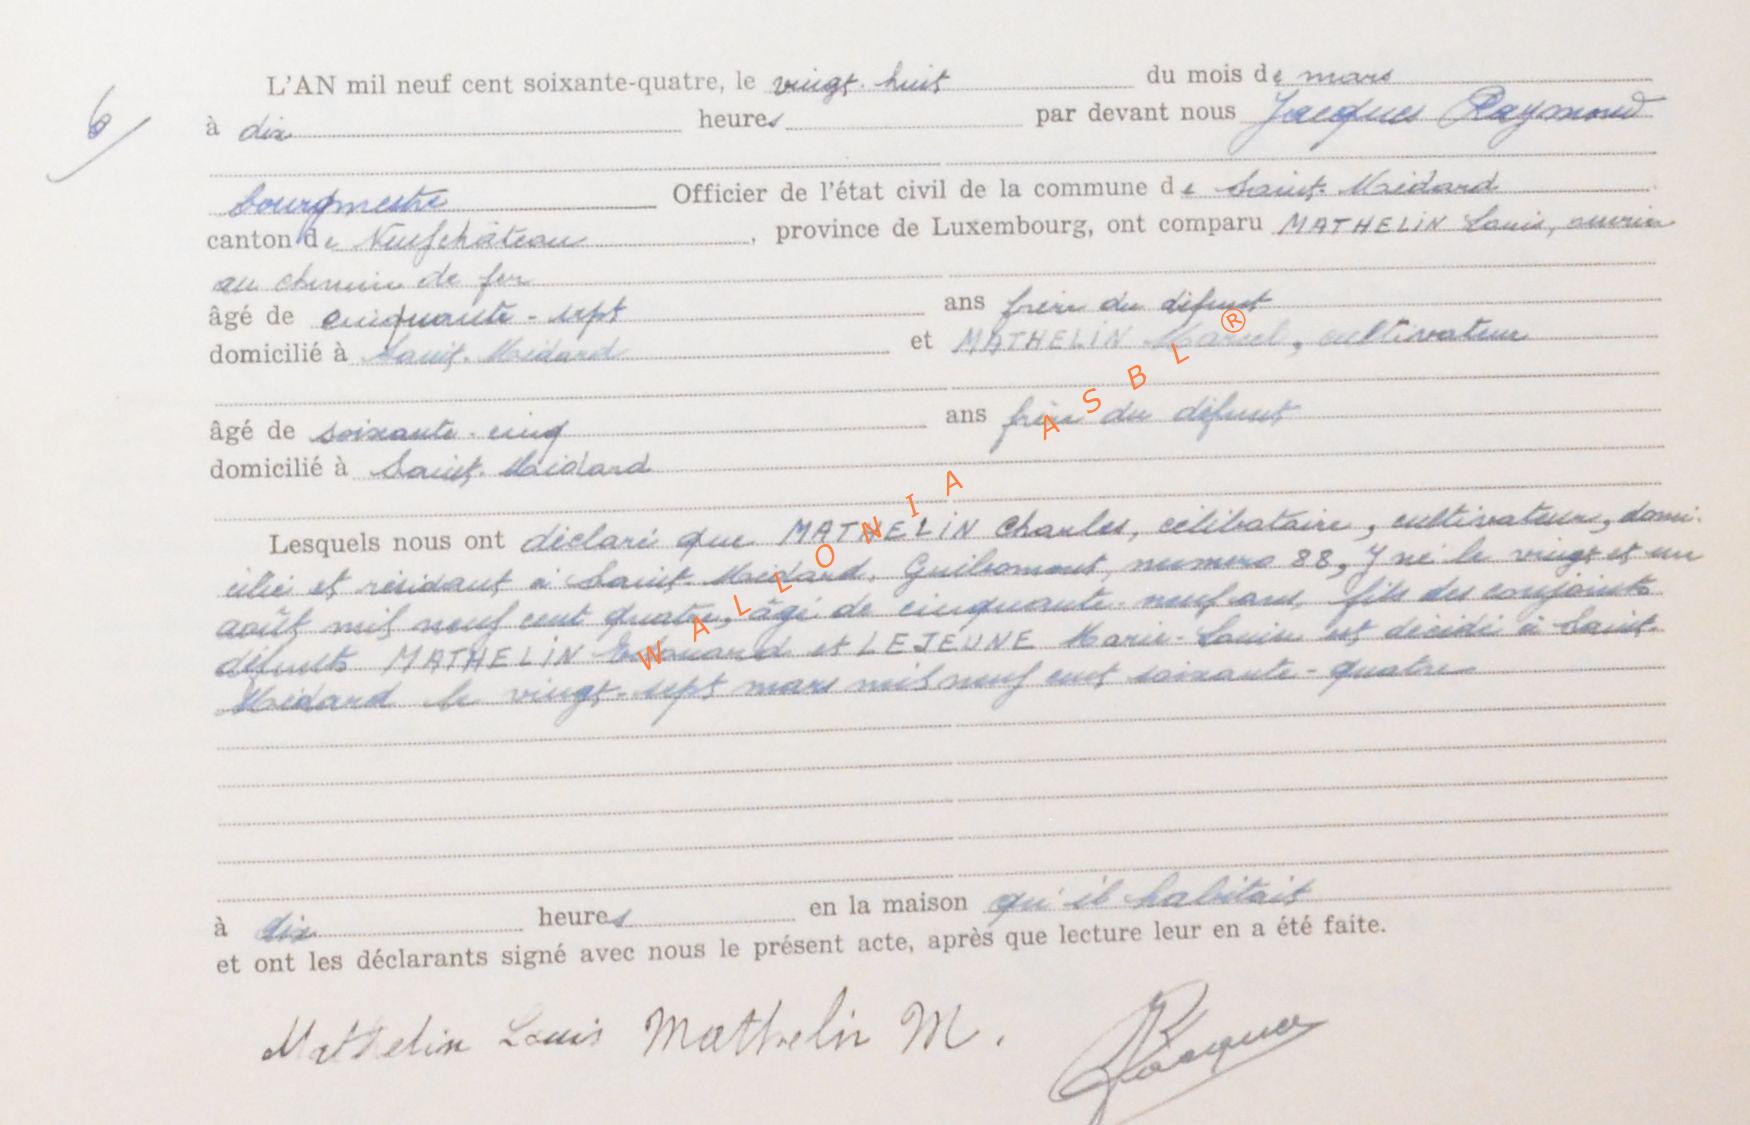 6
L'AN mil neuf cent soixante-quatre, le vingt-huit du mois de mars
à dix heures par devant nous Jacques Raymond
bourgmestre Officier de l'état civil de la commune de Saint-Médard
canton de Neufchâteau, province de Luxembourg, ont comparu MATHELIN Louis, ouvrier
au chemin de fer
âgé de cinquante-sept ans frère du défunt
domicilié à Saint-Médard et MATHELIN Marcel, cultivateur
âgé de soixante-cinq ans frère du défunt
domicilié à Saint-Médard
Lesquels nous ont déclaré que MATHELIN Charles, célibataire, cultivateur, domi-
cilié et résidant à Saint-Médard, numéro 88, y né le vingt et un
août mil neuf cent quatre, âgé de cinquante-neuf ans, fils des conjoints
défunts MATHELIN Edouard et LEJEUNE Marie-Louise est décédé à Saint-
Médard le vingt-sept mars mil neuf cent soixante-quatre
à dix heures en la maison qu'il habitait
et ont les déclarants signé avec nous le présent acte, après que lecture leur en a été faite.
Mathelin Louis Mathelin M. RJacques
WALLONIA ASBL®